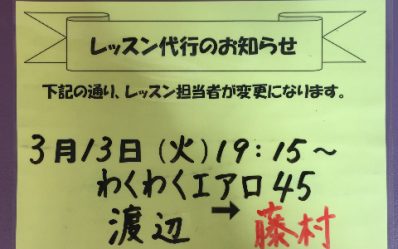 レッスン代行のお知らせ
下記の通り、レッスン担当者が変更になります。
3月13日(火)19:15～
わくわくエアロ45
渡辺→藤村